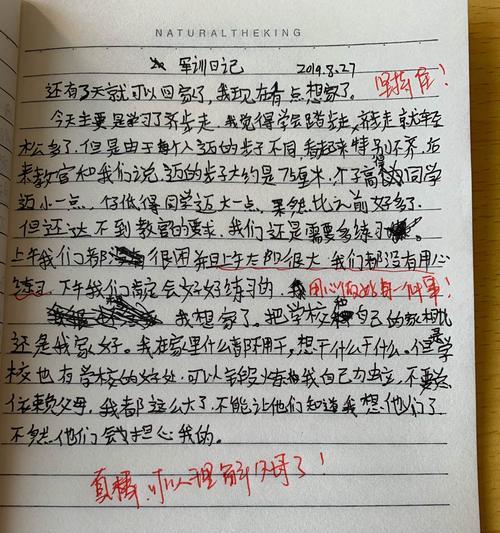 NATURALTHEKING
军训日记 2019.8.27
还有7天就可以回家了，我现在有点想家了。 坚持住！
今天主要是学习了齐步走，我觉得学会踏步走，齐走就轻
松多了。但是由于每个人迈的步子不同，看起来特别不齐，后
来教官和我们说，迈的步子大约是75厘米，个子高的同学
迈小一点，个子低得同学迈大一点，果然比之前好多了。
但还达不到教官的要求，我们还是需要多练习。
上午我们都很困，而且上午太阳很大，我们都没有用心
练习，下午我们肯定会好好练习的，用心做好每一件事！
我想家了。把学校和自己的家相比
还是我家好。我在家里什么都不用干，想干什么干什么。但是学
校也有学校的好处，可以锻炼我自己独立，不要总
依赖父母，我都这么大了，不能让他们知道我想他们了
不然他们会担心我的。
真棒，可以理解父母了！